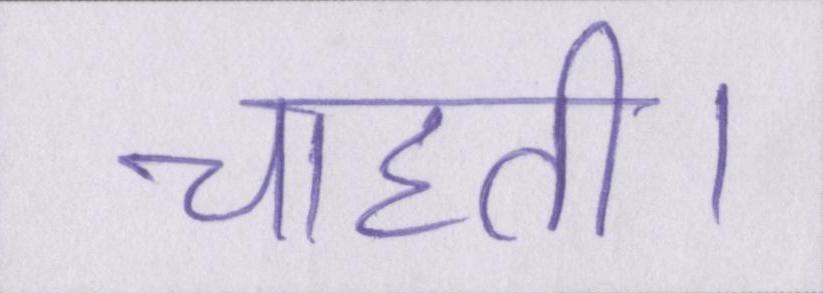 चाहती।